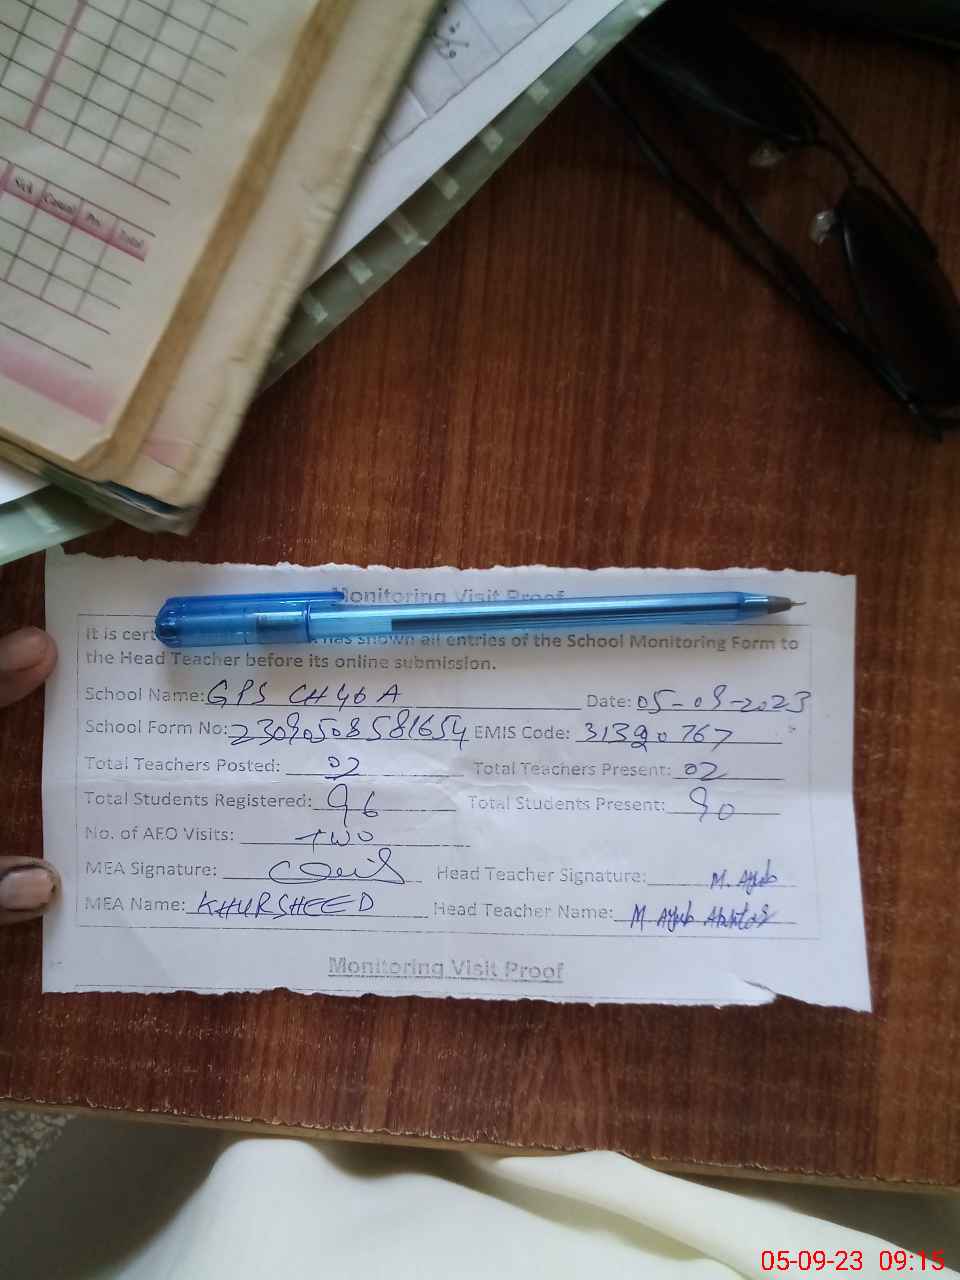 Sick Casual Priv. Total
Monitoring Visit Proof
It is cert has shown all entries of the School Monitoring Form to
the Head Teacher before its online submission.
School Name: GPS CH 46 A Date: 05-09-2023
School Form No: 23090508581654 EMIS Code: 31320767
Total Teachers Posted: 02 Total Teachers Present: 02
Total Students Registered: 96 Total Students Present: 90
No. of AEO Visits: TWO
MEA Signature: Head Teacher Signature: M. Ayub
MEA Name: KHURSHEED Head Teacher Name: M Ayub Akhtar
Monitoring Visit Proof
05-09-23 09:15